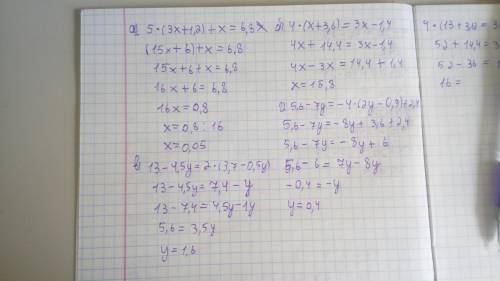 а) 5·(3x+1,2)+x=6,8x
(15x+6)+x=6,8
15x+6+x=6,8
16x+6=6,8
16x=0,8
x=0,8:16
x=0,05
в) 13-4,5y=2·(3,7-0,5y)
13-4,5y=7,4-y
13-7,4=4,5y-1y
5,6=3,5y
y=1,6
б) 4·(x+3,6)=3x-1,4
4x+14,4=3x-1,4
4x-3x=14,4+1,4
x=15,8
5,6-7y=-4·(2y-0,9)+2,4
5,6-7y=-8y+3,6+2,4
5,6-7y=-8y+6
5,6-6=7y-8y
-0,4=-y
y=0,4
4·(13+3,6)=3
52+14,4=3
52-36=
16=